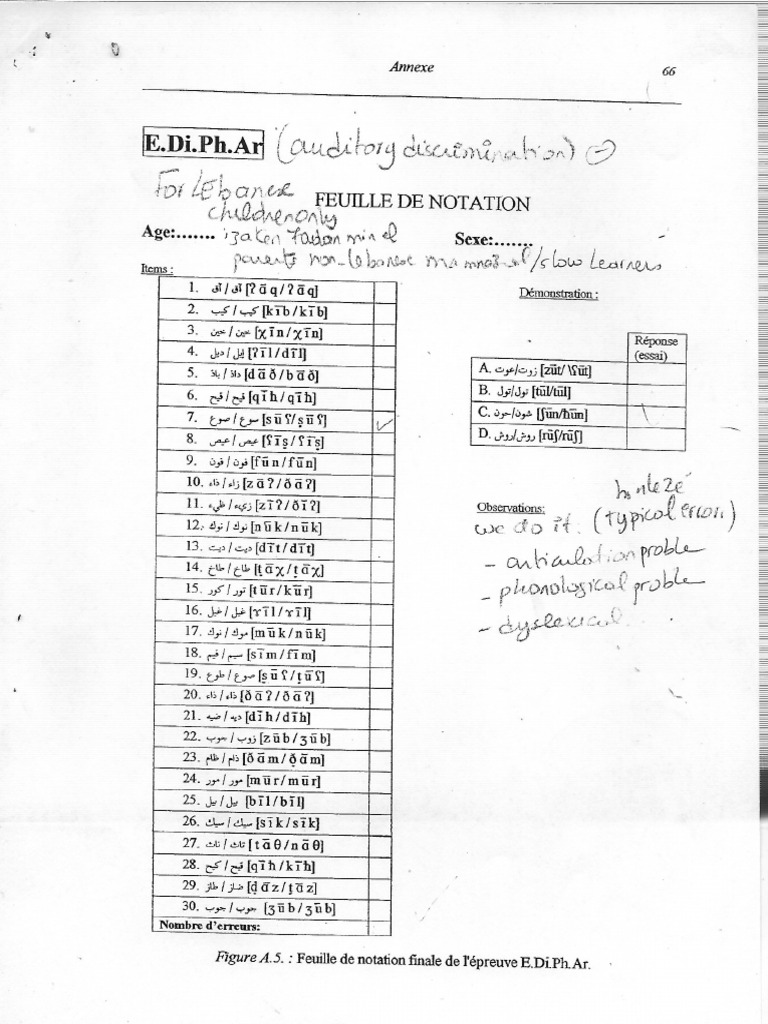 Annexe
66
E.Di.Ph.Ar (auditory discrimination)
For Lebanese
children only
FEUILLE DE NOTATION
Age:....... Sexe:.......
parents non-lebanese /slow Learners
Items :
1. آق / آق [ʔāq/ʔāq]
2. كيب / كيب [kīb/kīb]
3. خين / خين [χīn/χīn]
4. إيل / ديل [ʔīl/dīl]
5. داذ / باذ [dāð/bāð]
6. قيح / قيح [qīħ/qīħ]
7. سوع / صوع [sūʕ/ṣūʕ] ✓
8. عيص / عيص [ʕīṣ/ʕīṣ]
9. فون / فون [fūn/fūn]
10. زاء / ذاء [zāʔ/ðāʔ]
11. زيء / ظيء [zīʔ/ðīʔ]
12. نوك / نوك [nūk/nūk]
13. ديت / ديت [dīt/dīt]
14. طاخ / طاخ [ṭāχ/ṭāχ]
15. تور / كور [tūr/kūr]
16. غيل / غيل [ɤīl/ɤīl]
17. موك / نوك [mūk/nūk]
18. سيم / فيم [sīm/fīm]
19. صوع / طوع [ṣūʕ/ṭūʕ]
20. ذاء / ذاء [ðāʔ/ðāʔ]
21. ديه / ضيه [dīh/ḍīh]
22. زوب / جوب [zūb/ʒūb]
23. ذام / ظام [ðām/ð̣ām]
24. مور / مور [mūr/mūr]
25. بيل / بيل [bīl/bīl]
26. سيك / سيك [sīk/sīk]
27. تاث / ناث [tāθ/nāθ]
28. قيح / كيح [qīħ/kīħ]
29. ضاز / طاز [ḍāz/ṭāz]
30. جوب / جوب [ʒūb/ʒūb]
Nombre d'erreurs:
Démonstration :
Réponse
(essai)
A. زوت/عوت [zūt/ʕūt]
B. تول/تول [tūl/tūl]
C. شون/حون [ʃūn/ħūn]
D. روش/روش [rūʃ/rūʃ]
Observations:
we do it. (typical error)
- articulation proble
- phonological proble
- dyslexical
Figure A.5. : Feuille de notation finale de l'épreuve E.Di.Ph.Ar.